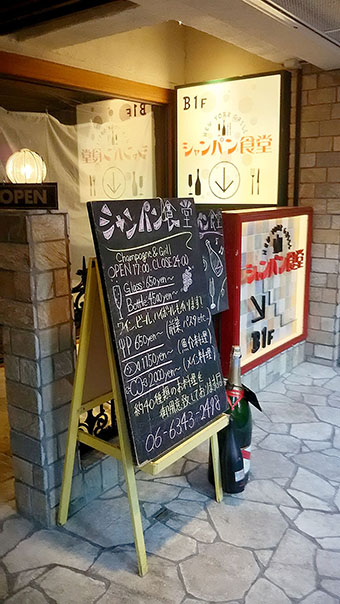 B1F
シャンパン食堂
B1F
シャンパン食堂
OPEN
シャンパン食堂
Champagne & Grill
OPEN 17:00 CLOSE 24:00
Glass 650yen〜
Bottle 4500yen〜
ワイン、ビール、ハイボールもあります!
650yen〜(前菜 パスタ etc.)
1150yen〜(魚介料理)
2000yen〜(メイン料理)
約40種類のお料理を
御用意致しております
06-6343-2498
シャンパン食堂
B1F